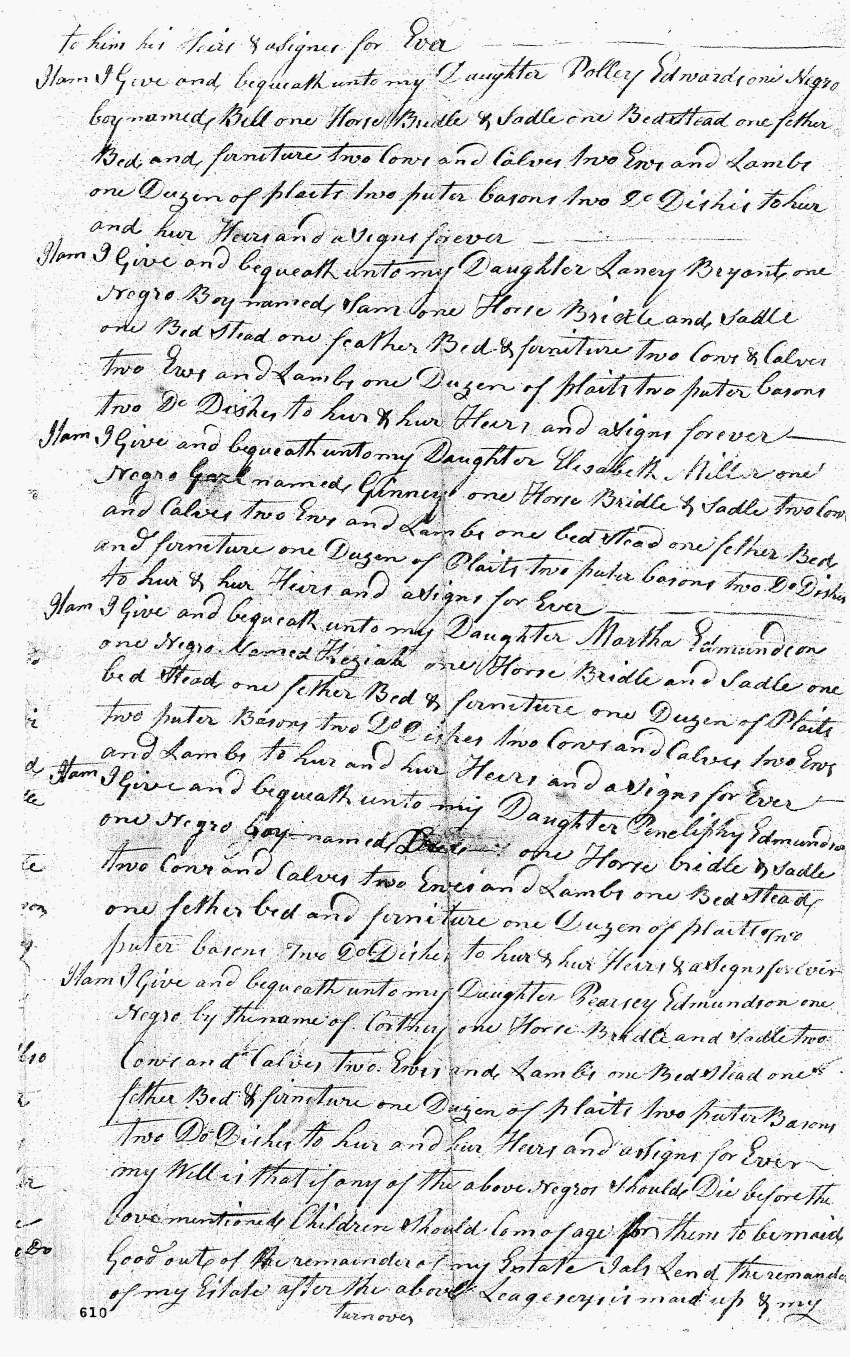 to him his Heirs & asignes for Ever
Itam I Give and bequeath unto my Daughter Polley Edwards one Negro
boy named Bill one Horse Bridle & Sadle one Bed Stead one fether
Bed and firniture two Cows and Calves two Ews and Lambs
one Duzen of plaits two puter basons two Do Dishis to hur
and hur Heirs and asigns forever
Itam I Give and bequeath unto my Daughter Laney Bryant one
Negro Boy named Sam one Horse Bridle and Sadle
one Bed Stead one feather Bed & firniture two Cows & Calves
two Ews and Lambs one Duzen of plaits two puter basons
two Do Dishes to hur & hur Heirs and asigns forever
Itam I Give and bequeath unto my Daughter Elisabeth Miller one
Negro named Ginney one Horse Bridle & Sadle two Cows
and Calves two Ews and Lambs one bed stead one fether Bed
and firniture one Duzen of Plaits two puter basons two Do Dishes
to hur & hur Heirs and asigns for Ever
Itam I Give and bequeath unto my Daughter Martha Edmundson
one Negro Named Keziah one Horse Bridle and Sadle one
bed Stead one fether Bed & firniture one Duzen of Plaits
two puter Basons two Do Dishes two Cows and Calves two Ews
and Lambs to hur and hur Heirs and asigns for Ever
Itam I Give and bequeath unto my Daughter Peneliphy Edmundson
one Negro boy named one Horse bridle & Sadle
two Cows and Calves two Ewes and Lambs one Bed Stead
one fether bed and firniture one Duzen of plaits two
puter basons Two Do Dishes to hur & hur Heirs & asigns for ever
Itam I Give and bequeath unto my Daughter Pearsey Edmundson one
Negro by the name of one Horse Bridle and Sadle two
Cows and Calves two Ewes and Lambs one Bed Stead one
fether Bed & firniture one Duzen of plaits two puter Basons
two Do Dishes to hur and hur Heirs and asigns for Ever
my Will is that if any of the above Negros should Die before the
bove mentioned Children should Com of age for them to be maid
Good out of the remainder of my Estate I als Lend the remander
of my Estate after the above Leageseys is maid up & my
turnover
610